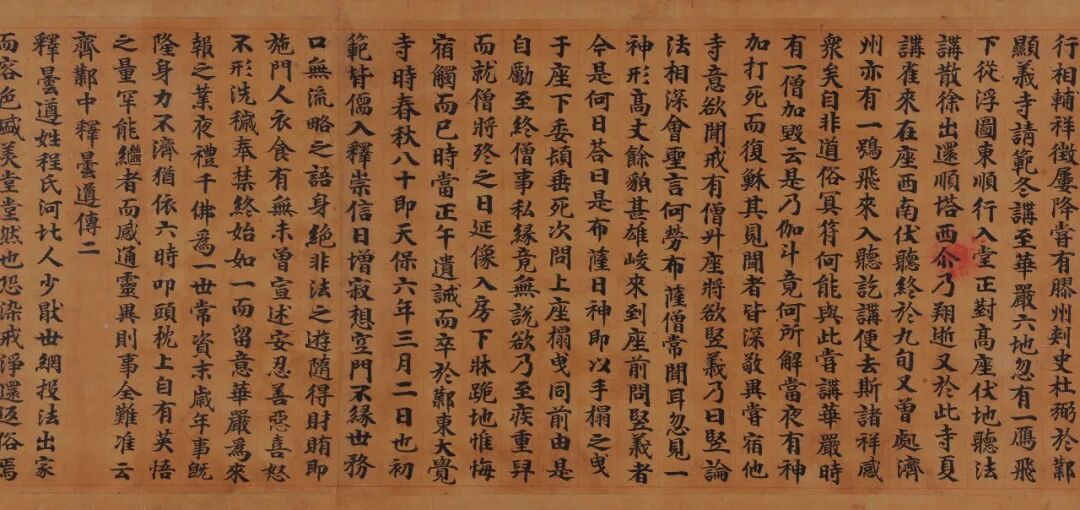 行相輔祥徵屢降嘗有膠州刾史杜弼於鄴
顯義寺請範冬講至華嚴六地忽有一鴈飛
下從浮圖東順行入堂正對髙座伏地聽法
講散徐出還順塔西尒乃翔逝又於此寺夏
講雀來在座西南伏聽終於九旬又曽處濟
州亦有一鴞飛來入聽訖講便去斯諸祥感
衆矣自非道俗冥符何能與此嘗講華嚴時
有一僧加毀云是乃伽斗竟何所解當夜有神
加打死而復穌其見聞者皆深敬異嘗宿他
寺意欲聞戒有僧昇座將欲竪義乃曰竪論
法相深會聖言何勞布薩僧常聞耳忽見一
神形髙丈餘貌甚雄峻來到座前問竪義者
今是何日荅曰是布薩日神即以手搨之曳
于座下委頓垂死次問上座搨曳同前由是
自勵至終僧事私緣竟無說欲乃至疾重舁
而就僧將終之日延像入房下牀跪地惟悔
宿觸而已時當正午遺誡而卒於鄴東大覺
寺時春秋八十即天保六年三月二日也初
範背儒入釋崇信日增寂想空門不緣世務
口無流略之語身絕非法之遊隨得財賄即
施門人衣食有無未曽宣述安忍善惡喜怒
不形洗穢奉禁終始如一而留意華嚴爲來
報之業夜禮千佛爲一世常資末歲年事旣
隆身力不濟猶依六時叩頭枕上自有英悟
之量罕能繼者而感通靈異則事全難准云
齊鄴中釋曇遵傳二
釋曇遵姓程氏河北人少猒世網投法出家
而容色盛美堂堂然也恐染戒淨還返俗焉